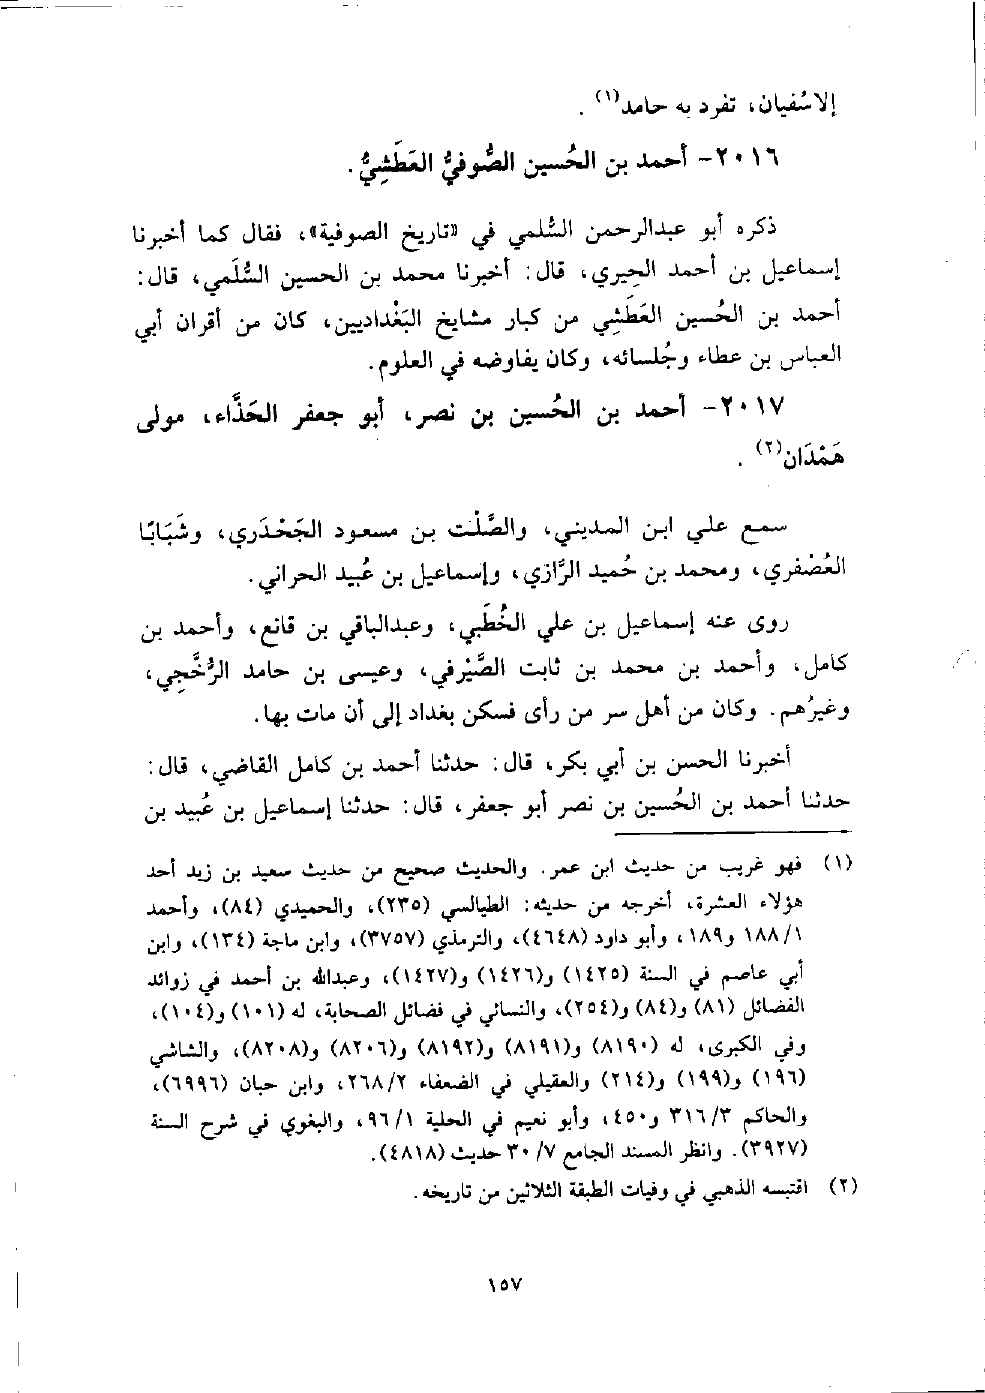 إلا سُفيان، تفرد به حامد(١) .
٢٠١٦- أحمد بن الحُسين الصُّوفيُّ العَطَشِيُّ.
ذكره أبو عبدالرحمن السُّلمي في «تاريخ الصوفية»، فقال كما أخبرنا
إسماعيل بن أحمد الحِيري، قال: أخبرنا محمد بن الحسين السُّلَمي، قال:
أحمد بن الحُسين العَطَشِي من كبار مشايخ البَغْداديين، كان من أقران أبي
العباس بن عطاء وجُلسائه، وكان يفاوضه في العلوم.
٢٠١٧- أحمد بن الحُسين بن نصر، أبو جعفر الحَذَّاء، مولى
هَمْدَان(٢) .
سمع علي ابن المديني، والصَّلْت بن مسعود الجَحْدَري، وشَبَابًا
العُصْفري، ومحمد بن حُميد الرَّازي، وإسماعيل بن عُبيد الحراني.
روى عنه إسماعيل بن علي الخُطَبي، وعبدالباقي بن قانع، وأحمد بن
كامل، وأحمد بن محمد بن ثابت الصَّيْرفي، وعيسى بن حامد الرُّخَّجِي،
وغيرُهم. وكان من أهل سر من رأى فسكن بغداد إلى أن مات بها.
أخبرنا الحسن بن أبي بكر، قال: حدثنا أحمد بن كامل القاضي، قال:
حدثنا أحمد بن الحُسين بن نصر أبو جعفر، قال: حدثنا إسماعيل بن عُبيد بن
(١) فهو غريب من حديث ابن عمر. والحديث صحيح من حديث سعيد بن زيد أحد
هؤلاء العشرة، أخرجه من حديثه: الطيالسي (٢٣٥)، والحميدي (٨٤)، وأحمد
١/ ١٨٨ و١٨٩، وأبو داود (٤٦٤٨)، والترمذي (٣٧٥٧)، وابن ماجة (١٣٤)، وابن
أبي عاصم في السنة (١٤٢٥) و(١٤٢٦) و(١٤٢٧)، وعبدالله بن أحمد في زوائد
الفضائل (٨١) و(٨٤) و(٢٥٤)، والنسائي في فضائل الصحابة، له (١٠١) و(١٠٤)،
وفي الكبرى، له (٨١٩٠) و(٨١٩١) و(٨١٩٢) و(٨٢٠٦) و(٨٢٠٨)، والشاشي
(١٩٦) و(١٩٩) و(٢١٤) والعقيلي في الضعفاء ٢/ ٢٦٨، وابن حبان (٦٩٩٦)،
والحاكم ٣/ ٣١٦ و٤٥٠، وأبو نعيم في الحلية ١/ ٩٦، والبغوي في شرح السنة
(٣٩٢٧). وانظر المسند الجامع ٧/ ٣٠ حديث (٤٨١٨).
(٢) اقتبسه الذهبي في وفيات الطبقة الثلاثين من تاريخه.
١٥٧